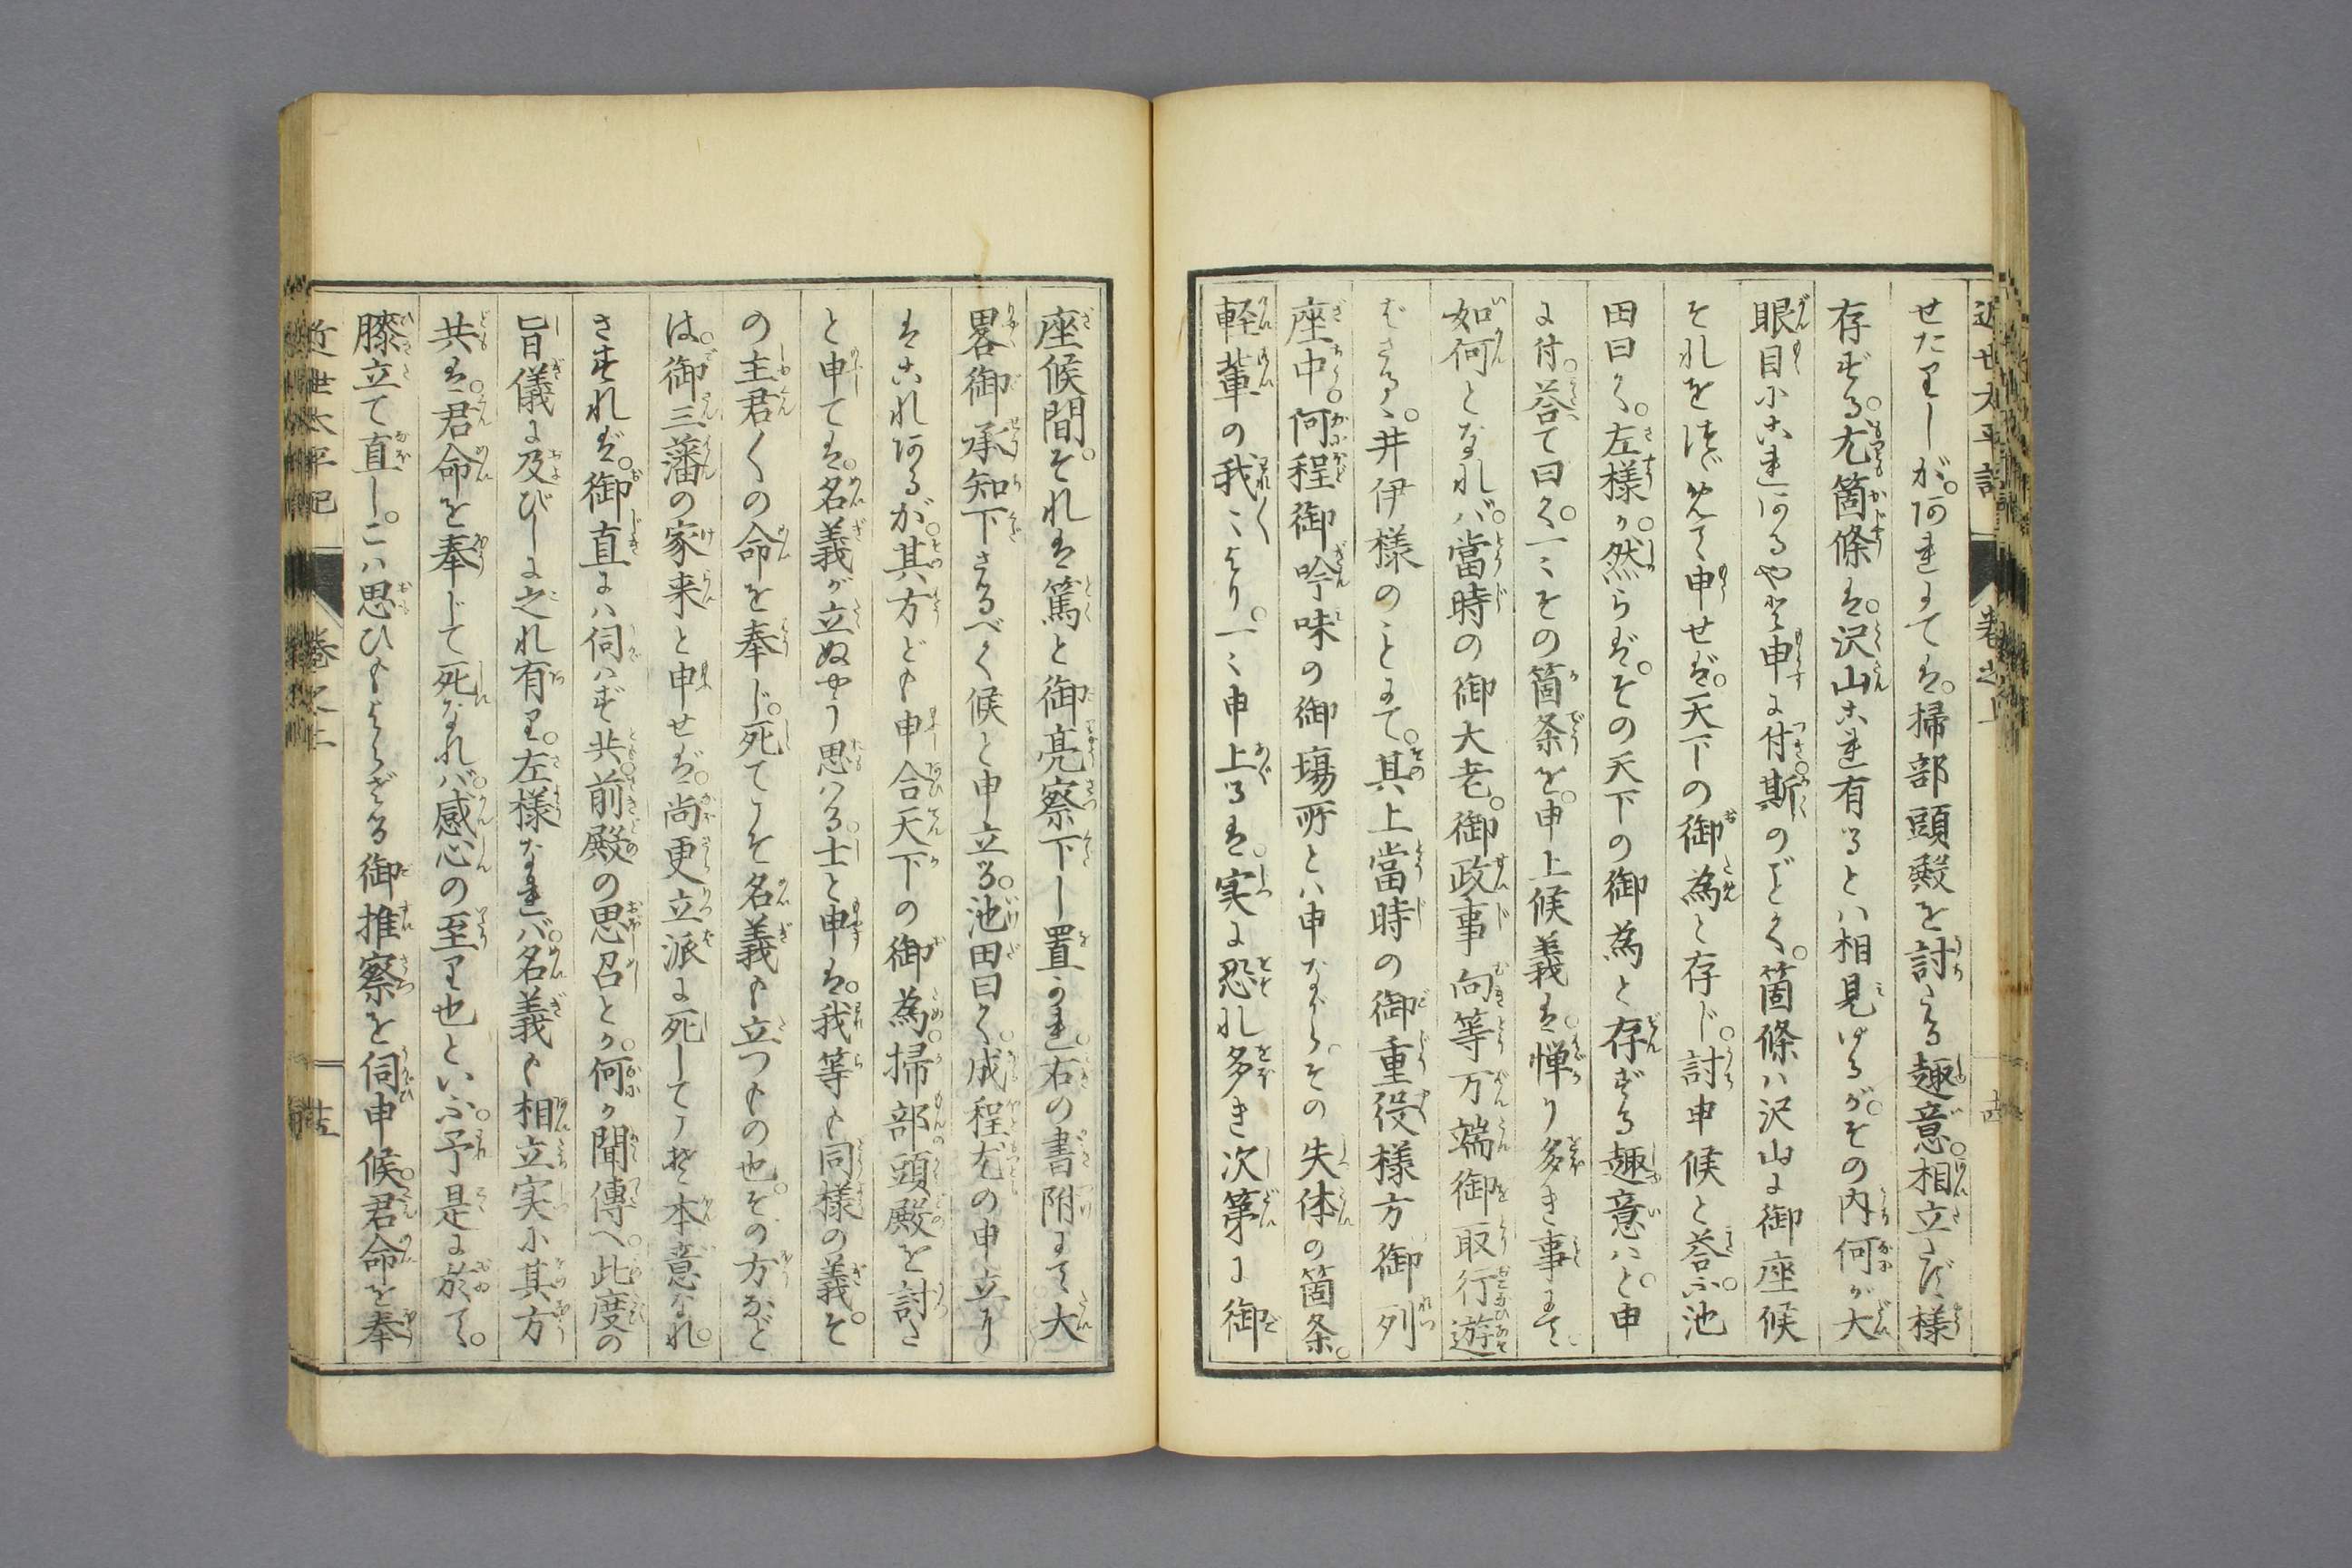 近世太平記 巻之上
せたりしが。何れにても。掃部頭殿を討たる趣意。相立ざる様
存ずる。尤箇條は。沢山これ有るとは相見ゆるが。その内何が大
眼目にこれあるやと申に付。斯のごとく。箇條は沢山に御座候
それを約めて申せば。天下の御為と存じ。討申候と答ふ。池
田曰く。左様か。然らば。その天下の御為と存ずる趣意はと。申
に付。答て曰く。一々その箇条を。申上候義は。憚り多き事にて。
如何となれば。當時の御大老。御政事向等万端御取行遊
ばさる。井伊様のことにて。其上當時の御重役様方御列
座中。何程御吟味の御場所とは申ながら。その失体の箇条。
軽輩の我々より。一々申上るは。実に恐れ多き次第に御
座候間。それは篤と御亮察下し置かれ。右の書附にて大
畧御承知下さるべく候と申立る。池田曰く。成程尤の申立り
はこれあるが。其方ども申合天下の御為。掃部頭殿を討た
と申ては。名義が立ぬやう思はる。士と申は。我等も同様の義。そ
の主君〱の命を奉じ。死てこそ名義も立つもの也。その方など
は。御三藩の家来と申せば。尚更立派に死してこそ本意なれ。
されば。御直には伺はず共。前殿の思召とか。何か聞傳へ。此度の
旨儀に及びしに之れ有り。左様なれば。名義も相立実に其方
共は。君命を奉じて死なれば。感心の至り也といふ。予是に於て。
膝立て直し。こは思ひもよらざる御推察を伺申候。君命を奉
近世太平記 巻之上 廿五